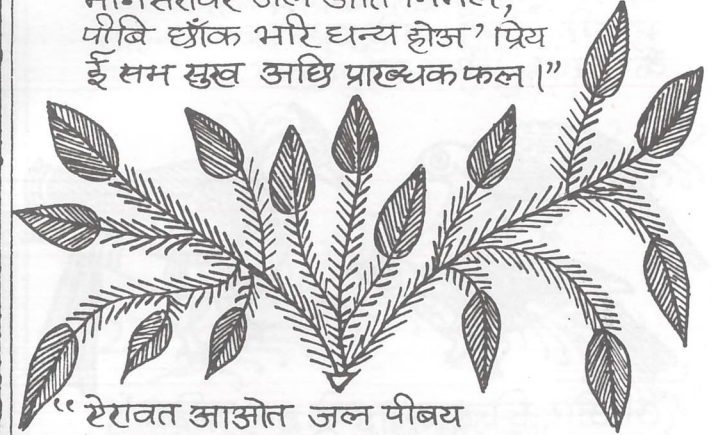 जल अति निर्मल,
पीबि छाँक भरि धन्य होअ' प्रिय
ई सभ सुख अछि प्रारब्धक फल।”
“ ऐरावत आओत जल पीबय